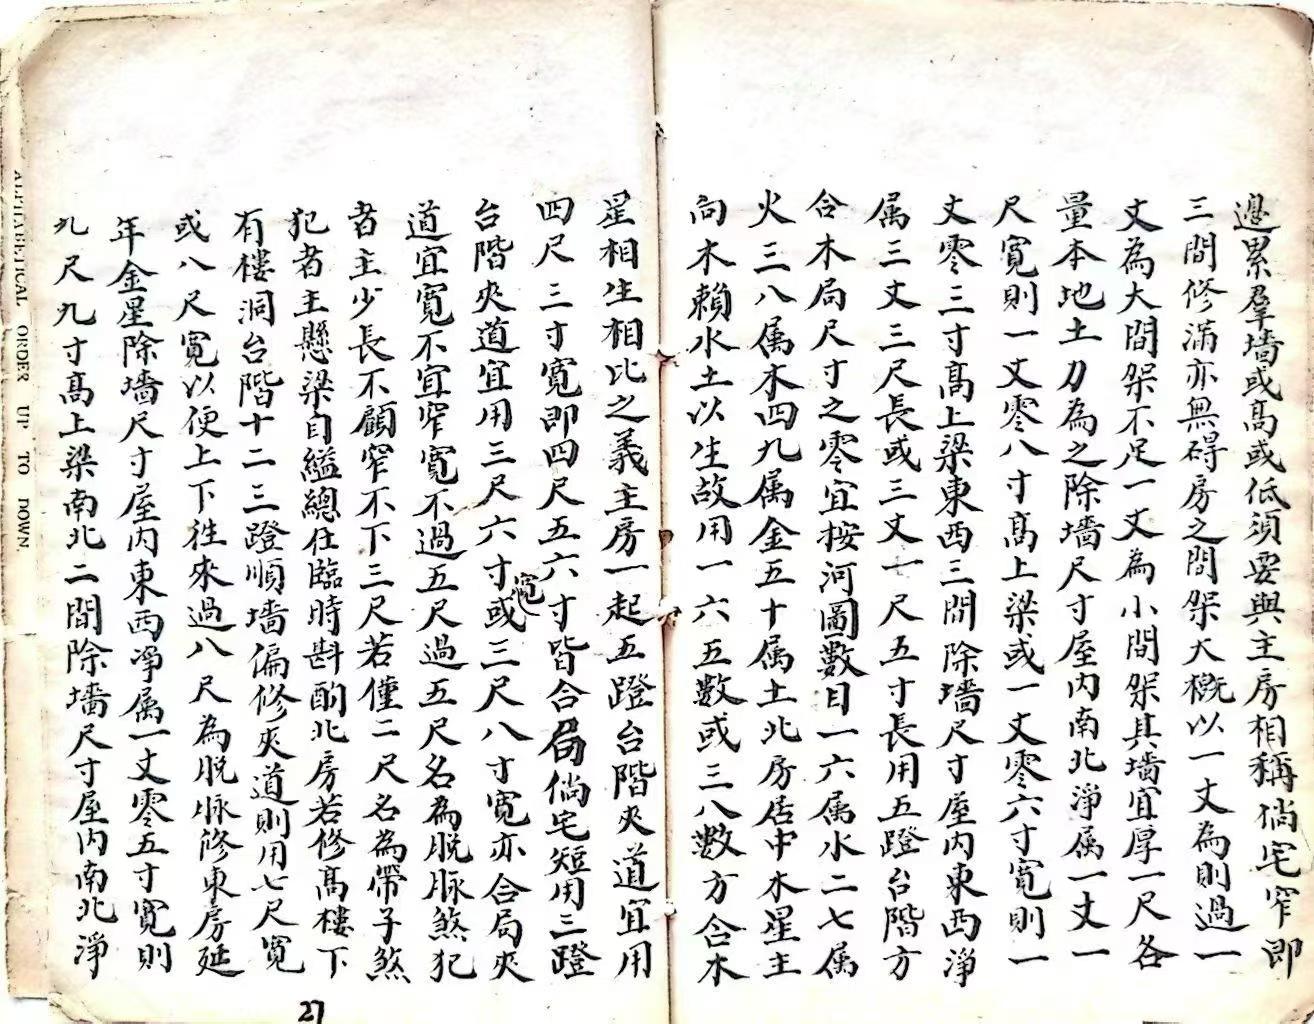 邉累羣墙或髙或低須要與主房相稱倘宅窄即
三間修滿亦無碍房之間架大概以一丈為則過一
丈為大間架不足一丈為小間架其墻宜厚一尺各
量本地土刀為之除墻尺寸屋内南北淨属一丈一
尺寛則一丈零八寸髙上梁或一丈零六寸寛則一
丈零三寸髙上梁東西三間除墻尺寸屋内東西淨
属三丈三尺長或三丈一尺五寸長用五蹬台階方
合木局尺寸之零宜按河圖數目一六属水二七属
火三八属木四九属金五十属土北房居中木星主
向木賴水土以生故用一六五數或三八數方合木
星相生相比之義主房一起五蹬台階夾道宜用
四尺三寸寛即四尺五六寸皆合局倘宅短用三蹬
台階夾道宜用三尺六寸寛或三尺八寸寛亦合局夾
道宜寛不宜窄寛不過五尺過五尺名為脱脉煞犯
者主少長不顧窄不下三尺若僅二尺名為帶子煞
犯者主懸梁自縊總在臨時斟酌北房若修髙樓下
有樓洞台階十二三蹬順墻偏修夾道則用七尺寛
或八尺寛以便上下徃來過八尺為脱脉修東房延
年金星除墻尺寸屋内東西淨属一丈零五寸寛則
九尺九寸髙上梁南北二間除墻尺寸屋内南北淨
27
ALPHABETICAL ORDER UP TO DOWN